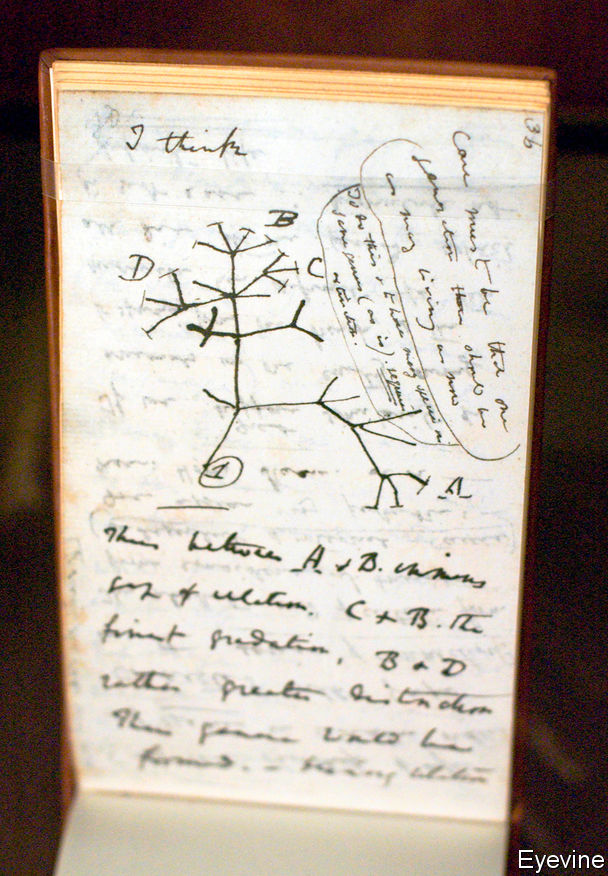 36
I think
Case must be that one
generation then should be
as many living as now
To do this & to have many species in
same genus (as is) requires
extinction.
B
D
C
1
A
Thus between A & B. immens
gap of relation. C & B. the
finest gradation, B & D
rather greater distinction
Thus genera would be
formed. — bearing relation
Eyevine